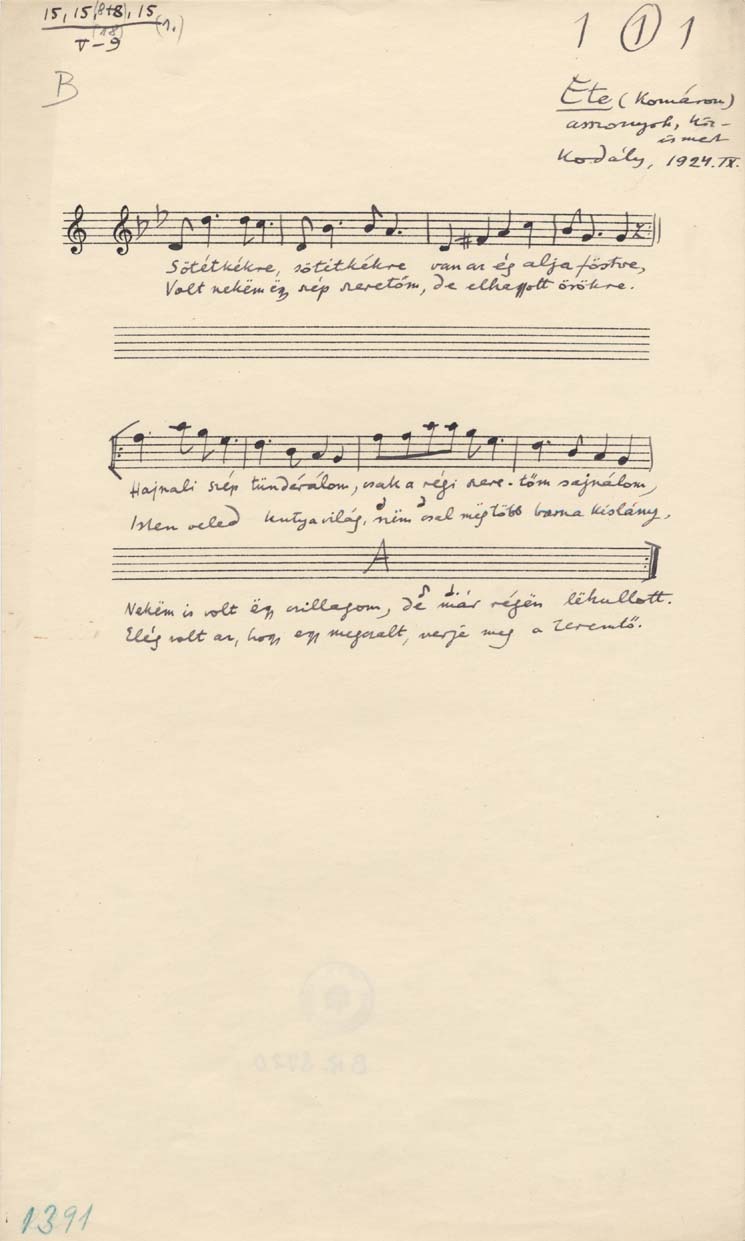 15, 15, (8+8), 15 (1.)
V–9 (18)
1 1 1
B
Ete (Komárom)
asszonyok, köz-
ismert
Kodály, 1924. IX.
Sötétkékre, sötétkékre van az ég alja föstve,
Volt nekëm ëgy szép szeretőm, de elhagyott örökre.
Hajnali szép tündérálom, csak a régi szere-tőm sajnálom,
Isten veled kutyavilág, nëm csal mëg több barna kislány,
A
Nekëm is volt ëgy csillagom, de már régën lëhullott.
Elég volt az, hogy egy megcsalt, verje meg a Teremtő.
BR.
1391